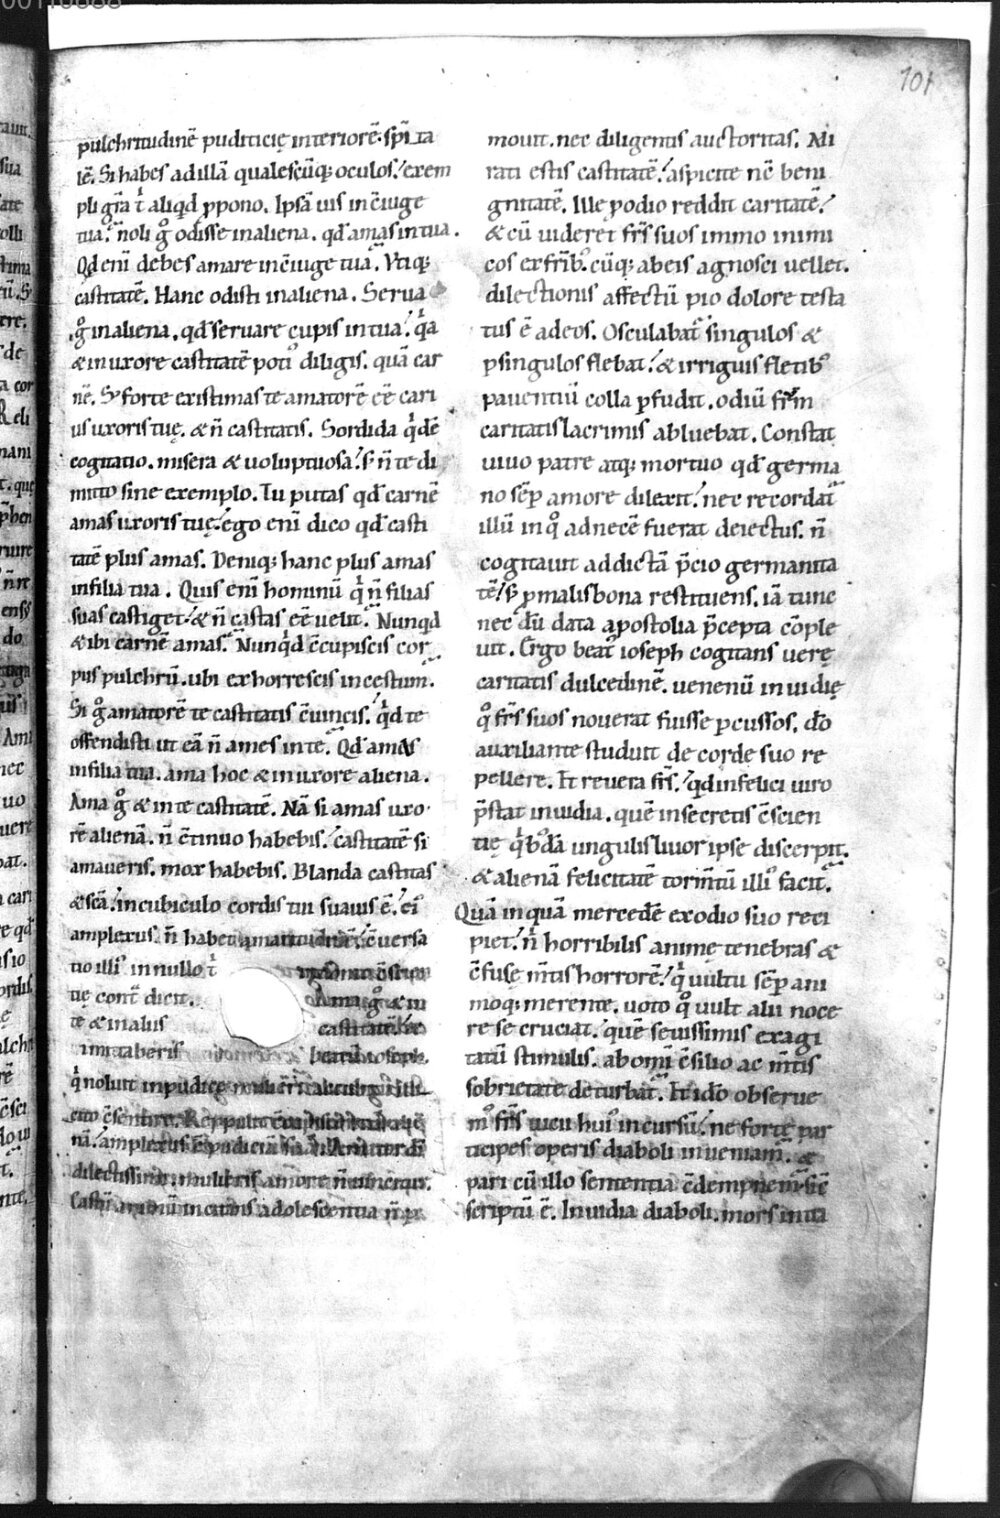 101
pulchritudinē puditicię interiorē. spīta
lē. Si habes ad illā qualescūq; oculos! exem
pli grā ł aliqd ꝓpono. Ipsā uis in c̄iuge
tua. noli gͦ odisse in aliena. qđ amas in tua.
Qđ enī debes amare in c̄iuge tua. Vtiq;
castitatē. Hanc odisti in aliena. Serua
gͦ in aliena. qđ seruare cupis in tua! qͥa
& in uxore castitatē poti᷒ diligis. quā car
nē. Sꝫ forte existimas te amatorē eē cari
us uxoris tuę. & n̄ castitatis. Sordida qͥdē
cogitatio. misera & uoluptuosa! sꝫ n̄ te di
mitto sine exemplo. Tu putas qđ carnē
amas uxoris tuę! ego enī dico qđ casti
tatē plus amas. Deniq; hanc plus amas
in filia tua. Quis enī hominū qͥ n̄ filias
suas castiget! & n̄ castas eē uelit. Nunqd
& ibi carnē amas. Nunqͥd c̄cupiscis cor
pus pulchrū. ubi exhorrescis incestum.
Si gͦ amatorē te castitatis c̄uincis! qͥd te
offendisti ut eā n̄ ames in te. Qđ amas
in filia tua. ama hoc & in uxore aliena.
Ama gͦ & in te castitatē. Nā si amas uxo
rē alienā. n̄ c̄tinuo habebis! castitatē si
amaueris. mox habebis. Blanda castitas
& scā! in cubiculo cordis tui suauis ē! ei᷒
amplexus n̄ habet amaritudinē! c̄uersa
tio illi᷒ in nullo ł
tię cont̄dicit. Ama gͦ & in
te & in aliis castitatē
imitaberis beatū ioseph.
qͥ noluit inpudicę
amplexus
dilectissimi. mulieris amore n̄ uincitur.
adolescentia n̄
mouit. nec diligentis auctoritas. Mi
rati estis castitatē! aspicite nc̄ beni
gnitatē. Ille ꝓ odio reddit caritatē!
& cū uideret frs̄ suos immo inimi
cos ex frīb᷒. cūq; ab eis agnosci uellet.
dilectionis affectū pio dolore testa
tus ē ad eos. Osculabat᷒ singulos &
ꝑ singulos flebat! & irriguis fletib᷒
pauentiū colla ꝑfudit. odiū frm̄
caritatis lacrimis abluebat. Constat
uiuo patre atq; mortuo qđ germa
no sēp amore dilexit! nec recordat᷒
illū in qͦ ad necē fuerat deiectus. n̄
cogitauit addictā p̄cio germanita
tē! sꝫ ꝓ malis bona restituens. iā tunc
nec dū data apostolia p̄cepta c̄ple
uit. Ergo beat᷒ ioseph cogitans uerę
caritatis dulcedinē. uenenū inuidię
qͦ frs̄ suos nouerat fuisse ꝑcussos. dō
auxiliante studuit de corde suo re
pellere. Et reuera frs̄! qͥd infelici uiro
p̄stat inuidia. quē in secretis c̄scien
tię qͥb᷒dā ungulis liuor ipse discerpit.
& alienā felicitatē tormtū illi᷒ facit.
Quā inquā mercedē ex odio suo reci
piet! n̄ horribilis animę tenebras &
c̄fusę mtis horrorē! qͥ uultu sēp ani
moq; merente. uoto qͦ uult alii noce
re se cruciat. quē seuissimis exagi
tatū stimulis. ab omi c̄silio ac mtis
sobrietate deturbat᷒. Et idō obserue
m᷒ frs̄ uicii hui᷒ incursū! ne forte par
ticipes operis diaboli inueniam᷒. &
pari cū illo sententia c̄dempnemur. sic̄
scriptū ē. Inuidia diaboli. mors inita